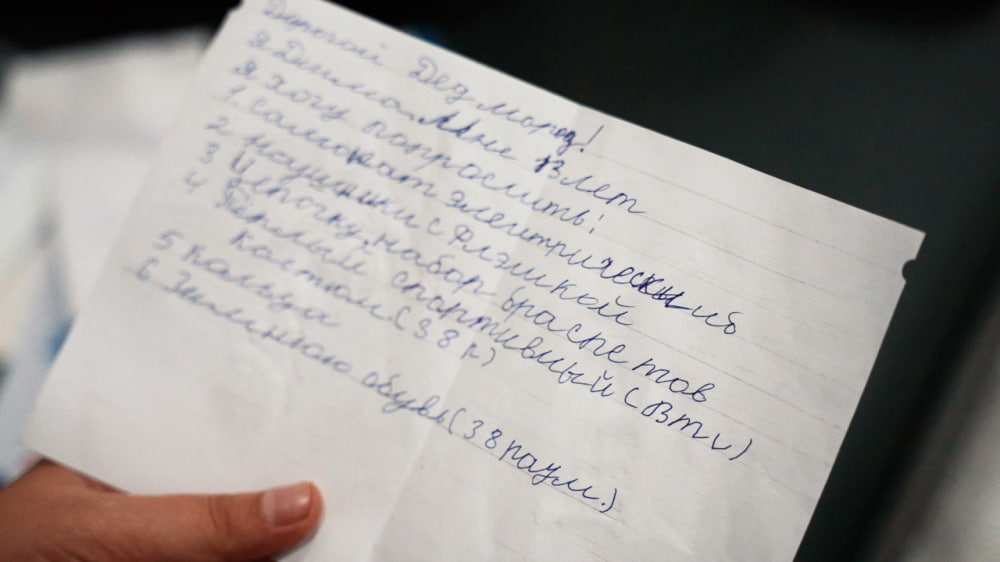 Дорогой Дед мороз!
Я Дима. Мне 13 лет
Я хочу попросить:
1. Самокат электрический
2 наушники с флэшкой
3 Цепочку, набор браслетов
4 Теплый спортивный (
костюм (38 р.)
5 Кольца
6 Зимнюю обувь (38